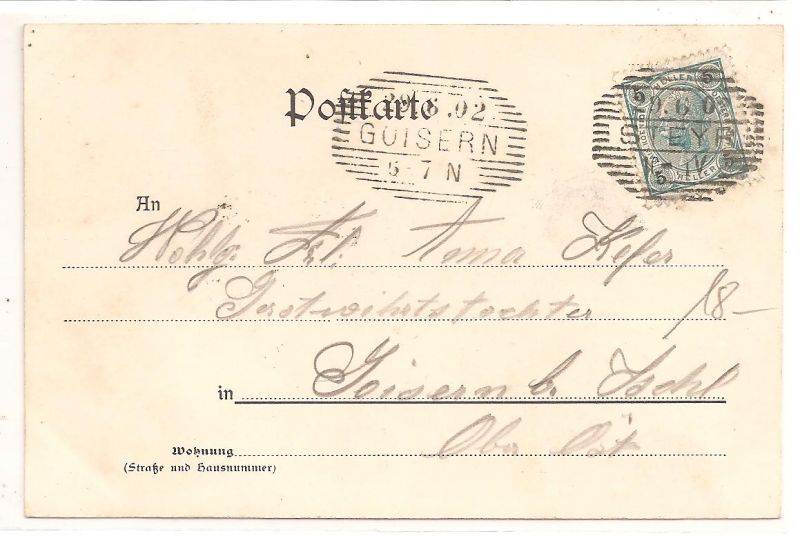 Postkarte
.6.02
GOISERN
5-7 N
5 HELLER 5
STEYR
5 HELLER 5
An
Wohlg. Frl. Anna Kefer
Gastwihrtstochter
18-
in Goisern b. Ischl
Ober Öst
Wohnung
(Straße und Hausnummer)